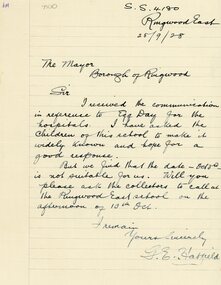 S.S. 4180
Ringwood East
25/9/28
The Mayor
Borough of Ringwood
Sir
I received the communication
in reference to Egg Day for the
hospitals. I have asked the
children of this school to make it
widely known and hope for a
good response.
But we find that the date - Oct
is not suitable for us. Will you
please ask the collectors to call at
the Ringwood East school on the
afternoon of 10th Oct.
I remain
Yours sincerely